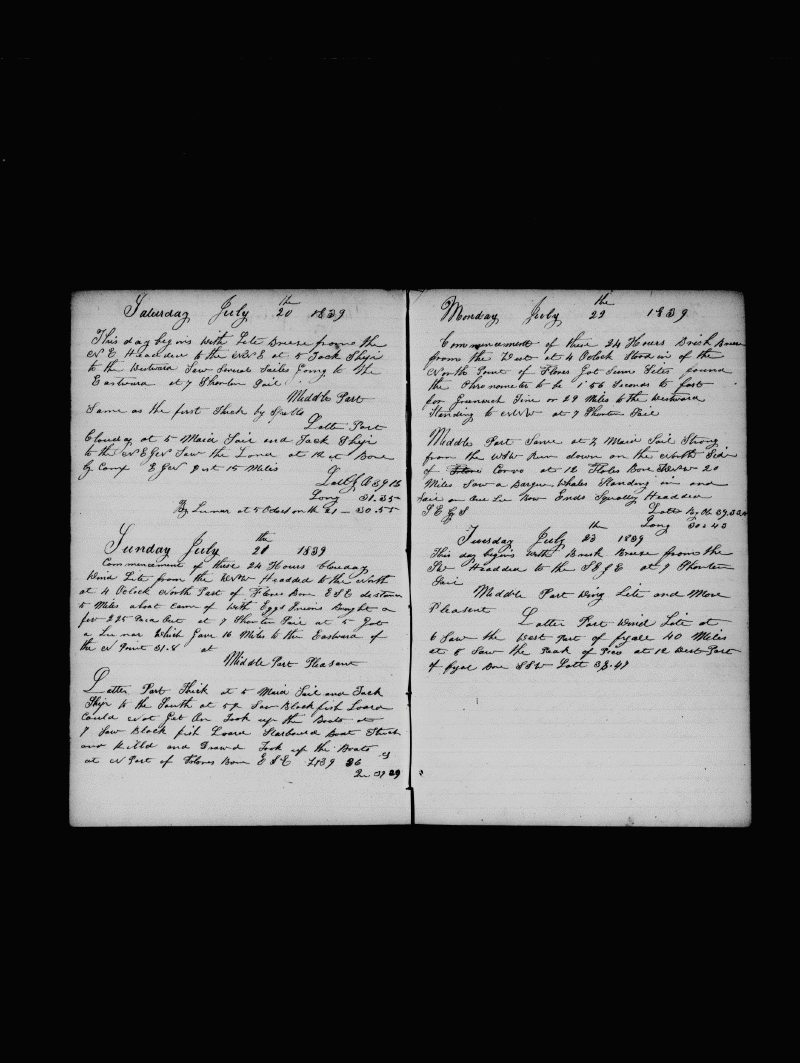 Saturday July 20th 1839
This day begins with Lite Breese from the
N E Headded to the NNE at 5 Tack Ship
to the Westward Saw Several Sailes Going to the
Eastward at 7 Shorten Sail
Middle Part
Same as the first Thick by Spells
Latter Part
Cloudy at 5 Maid Sail and Tack Ship
to the N E Saw the at 12 at Bore
by Comp E 15 Miles
Latt by O 39 16
Long 31.35
By Lunar at 5 Oclock on the 21 - 30.55
Sunday July 21th 1839
Commencement of these 24 Hours Cloudday
Wind Lite from the WNW Headded to the North
at 4 Oclock North Part of Flores Bore ESE distance
5 Miles a boat came of with Eggs Onions Bought a
few 2.25 at 7 Shorten Sail at 5 Got
a Lunar Which Gave 16 Miles to the Eastward of
the N Point 31.8 at
Middle Part Pleasant
Latter Part Thick at 5 Maid Sail and Tack
Ship to the South at 5 Saw Blackfish Loard
Could Not Get On Took up the Boats at
7 Saw Black fish Loard Starbourd Boat Struck
and Killd and Took up the Boats
at N Part of Flores Bore E S E 39 36
31 29
Monday July 22th 1839
Commencement of these 24 Hours Brisk Breese
from the West at 4 Oclock Stood in of the
North Point of Flores Got Sum Sites found
the Chronometer to be 1' 56 Seconds to fast
for Greenwich Time or 29 Miles to the Westward
Standing to NNW at 7 Shorten Sail
Middle Part Same at 1/2 Maid Sail Strong
from the WSW Run down on the North Side
of Corvo at 12 Flores Bore 20
Miles Saw a Barque Whales Standing in and
Sail on Our Lee Bow Ends Squally Headded
S E by S
Latt by Ob 39.52
Long 30:43
Tuesday July 23th 1839
This day begins with Brisk Breese from the
SW Headded to the SE by E at 7 Shorten
Sail
Middle Part Wind Lite and More
Pleasent
Latter Part Wind Lite at
6 Saw the West Part of fyale 40 Miles
at 8 Saw the Peak of Pico at 12 West Part
of fyal Bore SSW Latt 38.47